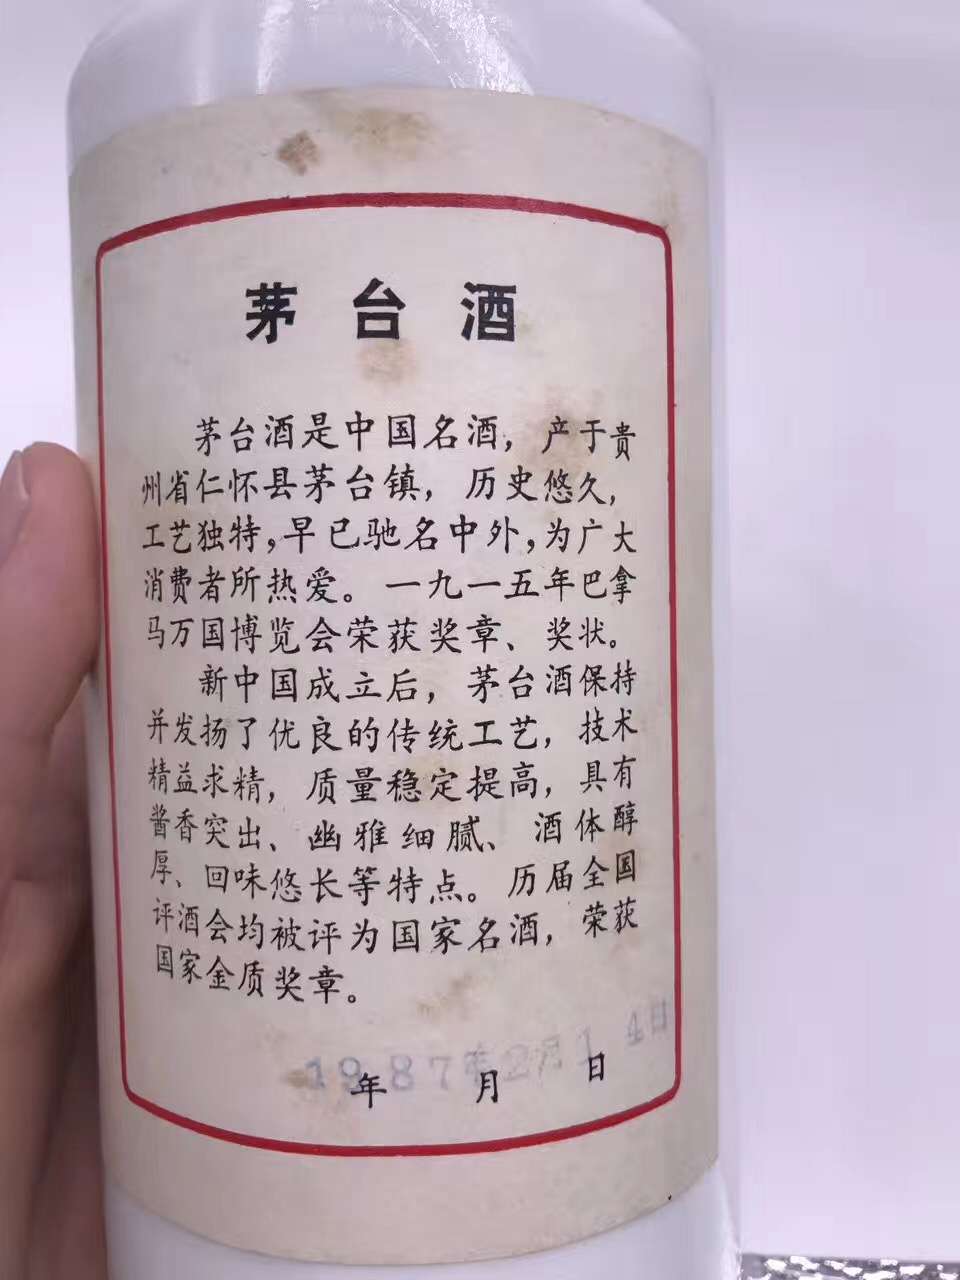 茅台酒
茅台酒是中国名酒，产于贵
州省仁怀县茅台镇，历史悠久，
工艺独特，早已驰名中外，为广大
消费者所热爱。一九一五年巴拿
马万国博览会荣获奖章、奖状。
新中国成立后，茅台酒保持
并发扬了优良的传统工艺，技术
精益求精，质量稳定提高，具有
酱香突出、幽雅细腻、酒体醇
厚、回味悠长等特点。历届全国
评酒会均被评为国家名酒，荣获
国家金质奖章。
1987年2月14日
年 月 日